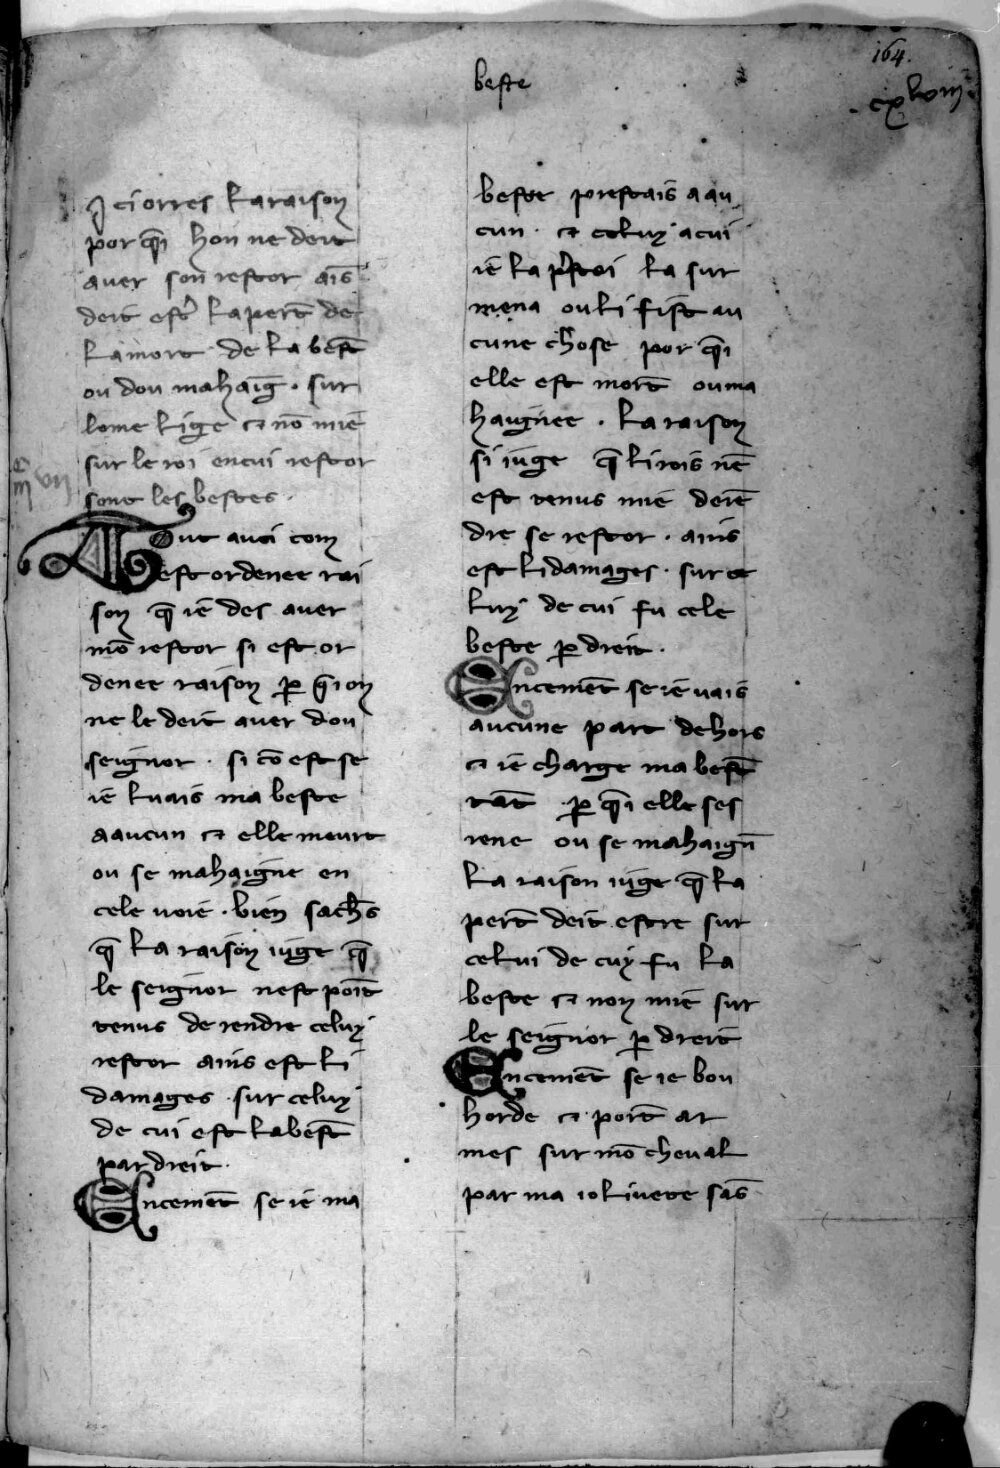 164.
cxlviij
beste
Ici orres la raison
por q̄i hon ne deit
aver son restor ais̄
deit est̉ la pert̄ de
la mort de la best̄
ou dou mahaiḡ . sur
lome lige et nō mie
sur le roi en cui restor
sont les bestes .
c̄ vii
m̄
Tout auci com
est ordenee rai
son q̄ ie des aver
mō restor si est or
denee raison ꝑ q̄i on
ne le deit aver dou
seignor . si cō est se
ie luais ma beste
a aucun et elle meurt
ou se mahaigne en
cele voie . bien sach̄s
q̄ la raison iuge q̄
le seignor nest poīt
tenus de rendre celuy
restor ains est li
damages . sur celuy
de cui est la best̄
par dreit .
Encemēt se ie ma
beste prestais a au
cun . et celuy a cui
ie la p̉stai la sur
mena ou li fist au
cune chose por q̄i
elle est mort̄ ou ma
haignee . la raison
si iuge q̄ li rois nē
est tenus mie de rē
dre se restor . ains
est li damages . sur ce
luy de cui fu cele
beste ꝑ dreit .
Encemēt se ie vais
aucune part dehors
et ie charge ma best̄
tāt ꝑ q̄i elle ses
rene ou se mahaign̄
la raison iuge q̄ la
pert̄ deit estre sur
celui de cuy fu la
beste et non mie sur
le seignor ꝑ dreit
Encemēt se ie bou
horde et port̄ ar
mes sur mō cheval
par ma iolivete sās